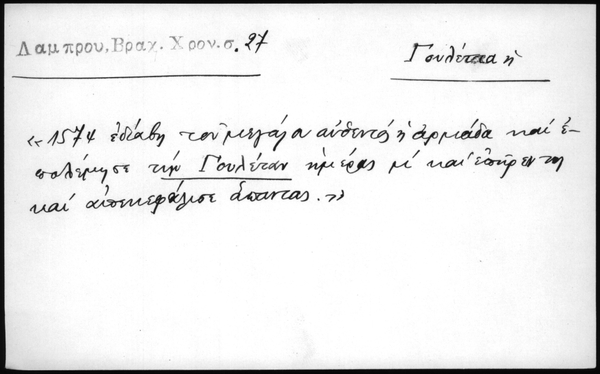 Λαμπρου, Βραχ. Χρον. σ. 27
Γουλέττα ἡ
«1574 ἐδιάβη τοῦ μεγάλου αὐθεντός ἡ ἁρμάδα καί ἐ-
πολέμησε τήν Γουλέταν ἡμέρας μ΄ καί ἐπῆρεν τη
καί ἀπεκεφάλισε ἅπαντας.»